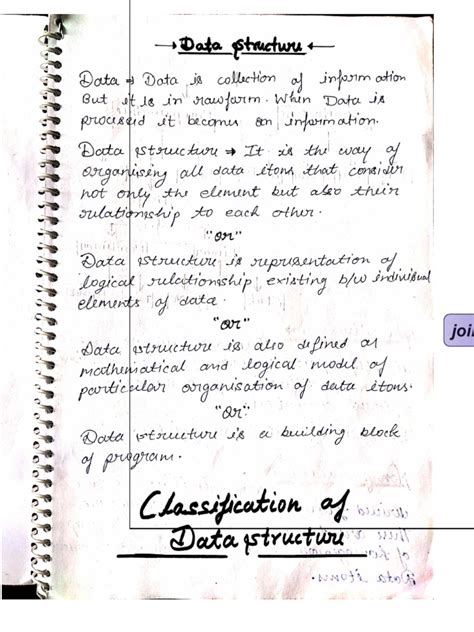 → Data structure ←
Data → Data is collection of information
But it is in rawform. When Data is
processed it becomes an information.
Data structure → It is the way of
organising all data itons that consider
not only the element but also their
relationship to each other.
"or"
Data structure is representation of
logical relationship existing b/w individual
elements of data.
"or"
Data structure is also defined as
mathematical and logical model of
particular organisation of data itons.
"Or"
Data structure is a building block
of program.
Classification of
Data structure
joi